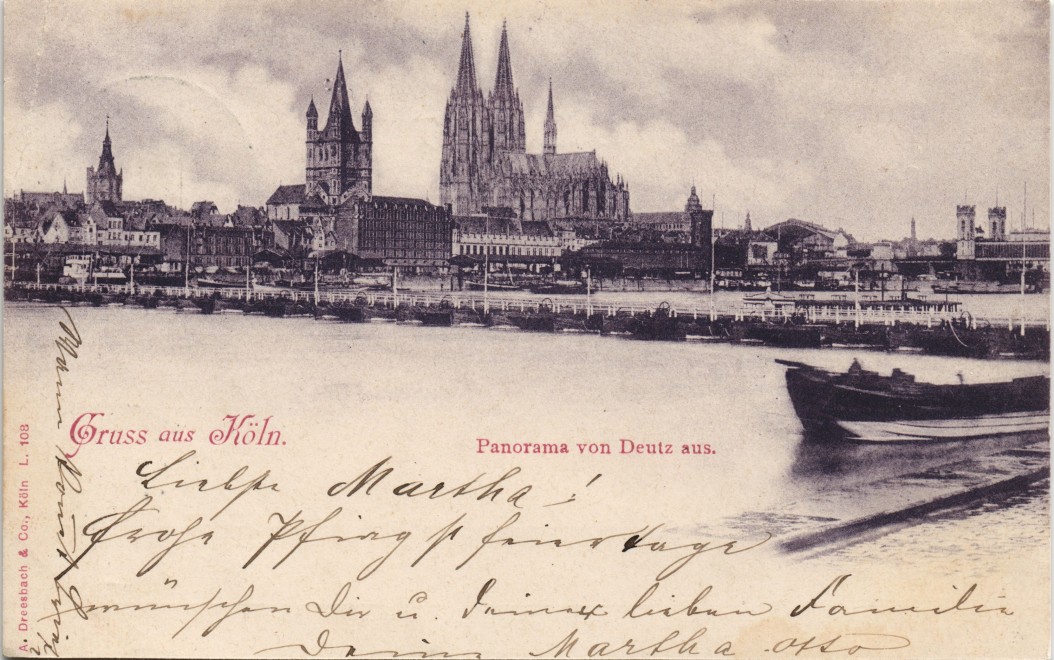 Gruss aus Köln.
Panorama von Deutz aus.
Liebste Martha!
Frohe Pfingstfeiertage
wünschen Dir u. Deiner lieben Familie
Deine Martha Otto
Wann kommst
A. Dreesbach & Co., Köln L. 108